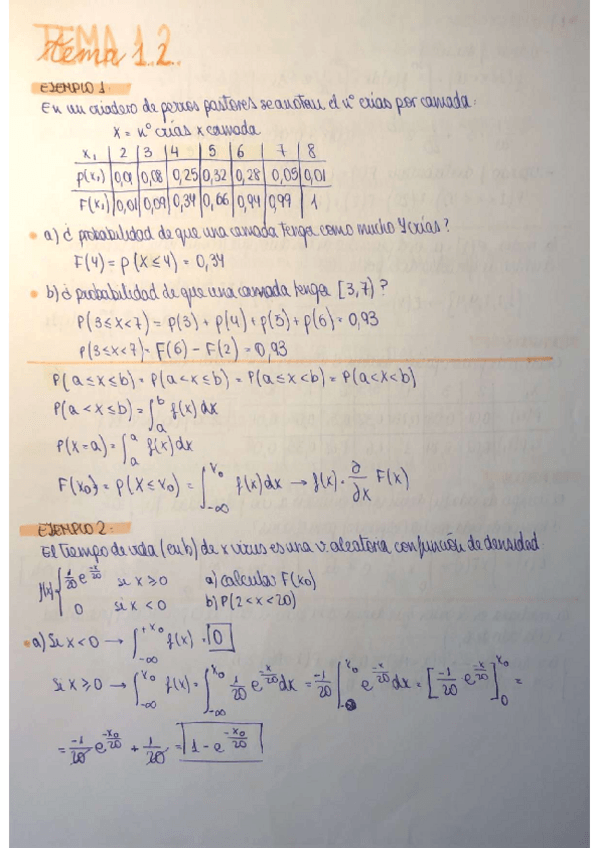 TEMA 1.2
tema 1.2.
EJEMPLO 1:
En un criadero de perros pastores se anotan el nº crías por camada:
X = nº crías x camada
x₁ | 2 | 3 | 4 | 5 | 6 | 7 | 8
p(x₁) | 0,01 | 0,08 | 0,25 | 0,32 | 0,28 | 0,05 | 0,01
F(x₁) | 0,01 | 0,09 | 0,34 | 0,66 | 0,94 | 0,99 | 1
a) ¿ probabilidad de que una camada tenga como mucho 4 crías?
F(4) = p(X ≤ 4) = 0,34
b) ¿ probabilidad de que una camada tenga [3,7) ?
P(3 ≤ x < 7) = p(3) + p(4) + p(5) + p(6) = 0,93
P(3 ≤ x < 7) = F(6) - F(2) = 0,93
P(a ≤ x ≤ b) = P(a < x ≤ b) = P(a ≤ x < b) = P(a < x < b)
P(a < x ≤ b) = ∫_a^b f(x) dx
P(x = a) = ∫_a^a f(x) dx
F(x₀) = P(X ≤ x₀) = ∫_{-∞}^{x₀} f(x) dx → f(x) · ∂/∂x F(x)
EJEMPLO 2:
El tiempo de vida (en h) de x virus es una v. aleatoria con función de densidad:
f(x) { 1/20 e^{-x/20} si x ≥ 0 a) calcular F(x₀)
0 si x < 0 b) P(2 < x < 20)
a) Si x < 0 → ∫_{-∞}^{+x₀} f(x) · 0
Si x ≥ 0 → ∫_{-∞}^{x₀} f(x) = ∫_{-∞}^{x₀} 1/20 e^{-x/20} dx = -1/20 ∫_{-0}^{x₀} e^{-x/20} dx = [-1/20 e^{-x/20}]_0^{x₀} =
= -1/20 e^{-x₀/20} + 1/20 = 1 - e^{-x₀/20}